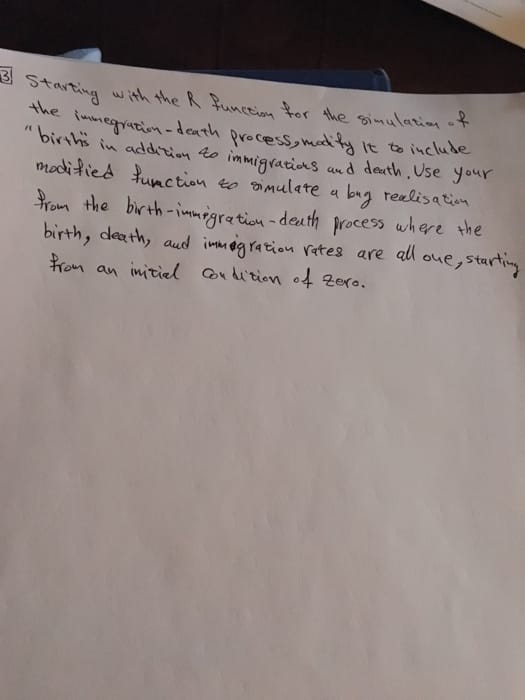 3 Starting with the R function for the simulation of
the immegration-death process, modify It to include
"births in addition to immigrations and death. Use your
modified function to simulate a long realisation
from the birth-immigration-death process where the
birth, death, and immigration rates are all one, starting
from an initial condition of zero.